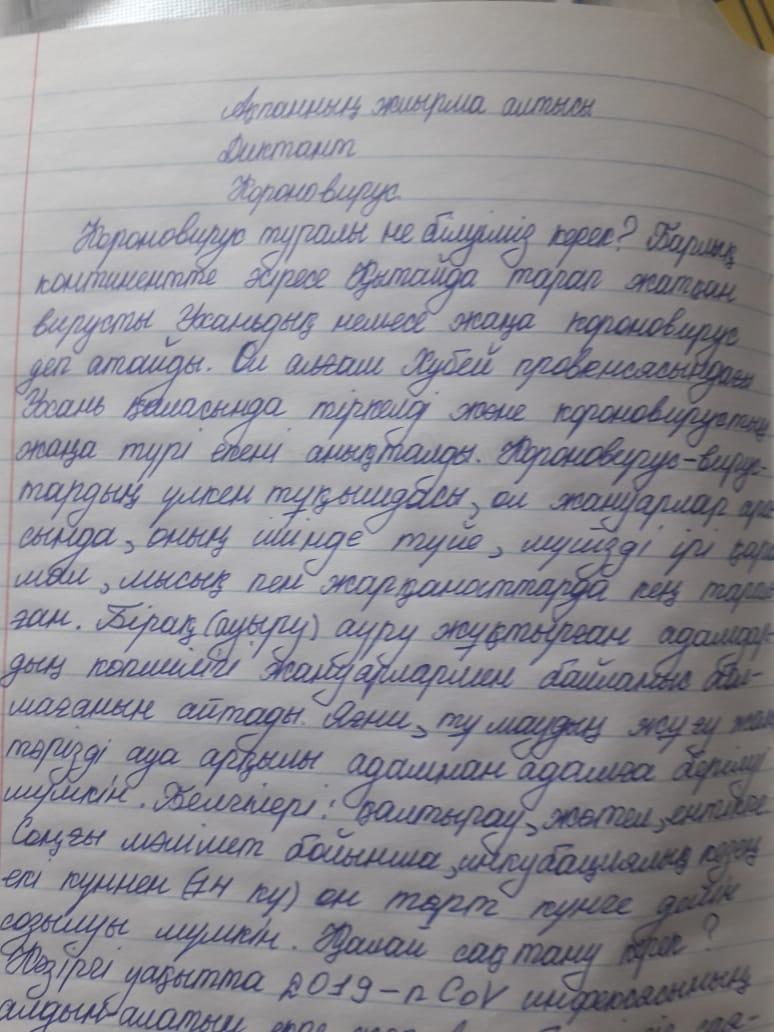 Ақпанның жиырма алтысы
Диктант
Короновирус.
Короновирус туралы не білуіміз керек? Барлық
континентте әсіресе Қытайда тарап жатқан
вирусты Уханьдық немесе жаңа короновирус
деп атайды. Ол алғаш Хубей провенсясындағы
Ухань қаласында тіркелді және короновирустың
жаңа түрі екені анықталды. Короновирус-вирус-
тардың үлкен тұқымдасы, ол жануарлар ара
сында, оның ішінде түйе, мүйізді ірі қара
мал, мысық пен жарқанаттарда кең тарал
ған. Бірақ (ауыру) ауру жұқтырған адамдар-
дың көпшілігі жануарлармен байланыс бол-
мағанын айтады. Яғни, тұмаудың жұғу жолы
тәрізді ауа арқылы адамнан адамға берілуі
мүмкін. Белгілері: қалтырау, жөтел, ентікпе
Соңғы мәлімет бойынша, инкубациялық кезең
екі күннен (14 кү) он төрт күнге дейін
созылуы мүмкін. Қалай сақтану керек?
Қәзіргі уақытта 2019-n CoV инфексясының
алдын-алатын екпе